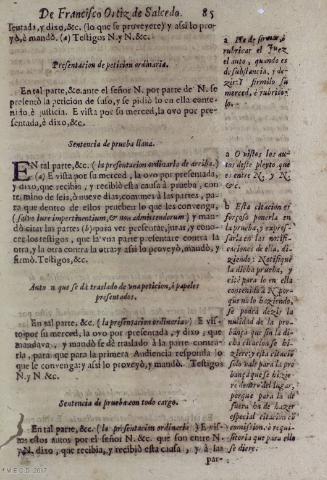 De Francisco Ortiz de Salcedo. 85
sentada, y dixo, &c. (lo que se proveyere) y assi lo pro-
yò, è mandò. (a) Testigos N. y N. &c.
Presentacion de peticion ordinaria.
En tal parte, &c. ante el señor N. por parte de N. se
presentò la peticion de suso, y se pidio lo en ella conte-
nido, è justicia. E vista por su merced, la ovo por pre-
sentada, è dixo, &c.
Sentencia de prueba llana.
EN tal parte, &c. (la presentacion ordinaria de arriba.)
(a) E vista por su merced, la ovo por presentada,
y dixo, que recibia, y recibiò esta causa à prueba, con
termino de seis, ò nueve dias, comunes à las partes, pa-
ra que dentro de ellos prueben lo que les convenga,
(salvo iure impertinentium, & non admittendorum) y man-
dò citar las partes (b) para ver presentar, jurar, y cono-
cer los testigos, que la vna parte presentare contra la
otra, y la otra contra la otra: y assi lo proveyò, mandò, y
firmò. Testigos, &c.
Auto en que se dà traslado de una peticion, ò papeles
presentados.
En tal parte, &c. (la presentacion ordinaria) E vis-
to por su merced, la ovo por presentada, y dixo, que
mandava, y mandò se dè traslado à la parte contra-
ria, para que para la primera Audiencia responda lo
que le convenga: y assi lo proveyò, y mandò. Testigos
N. y N. &c.
Sentencia de prueba con todo cargo.
En tal parte, &c. (la presentacion ordinaria) E vis-
tos estos autos por el señor N. &c. que son entre N.
y N. dixo, que recibia, y recibiò esta causa, y à las
par-
a Ha de firmar, ò
rubricar el Juez
el auto, quando es
de substancia, y de-
zir: I firmòlo su
merced, ò rubricò-
lo.
a O vistos los au-
tos deste pleyto, que
es entre N. y N.
&c.
b Esta citacion es
forçoso ponerla en
la prueba, y expres-
sarla en las notifi-
caciones de ella, di-
ziendo: Notifiquè
la dicha prueba, y
citè para lo en ella
contenido à N. por-
que no lo haziendo,
se podrà dezir la
nulidad de la pro-
bança que sin la di-
cha citacion se hi-
ziere; y esta citaciò
solo vale para la pro
bança que se hizie-
re dentro del lugar,
porque para la de
fuera ha de hazer
especial citacion en
comission, è requi-
sitoria que para ello
se diere.
M.E.C.D. 2017